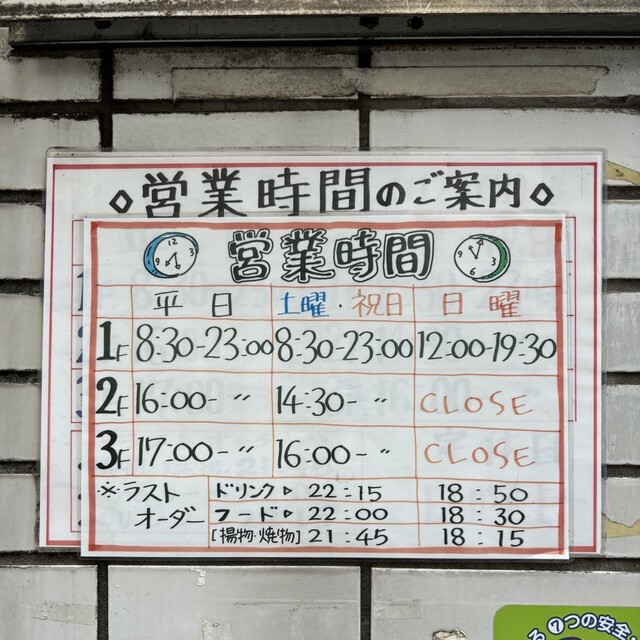 ◇営業時間のご案内◇
営業時間
平日 土曜・祝日 日曜
1F 8:30-23:00 8:30-23:00 12:00-19:30
2F 16:00- 〃 14:30- 〃 CLOSE
3F 17:00- 〃 16:00- 〃 CLOSE
※ラストオーダー
ドリンク▷ 22:15 18:50
フード▷ 22:00 18:30
[揚物・焼物] 21:45 18:15
る❼つの安全